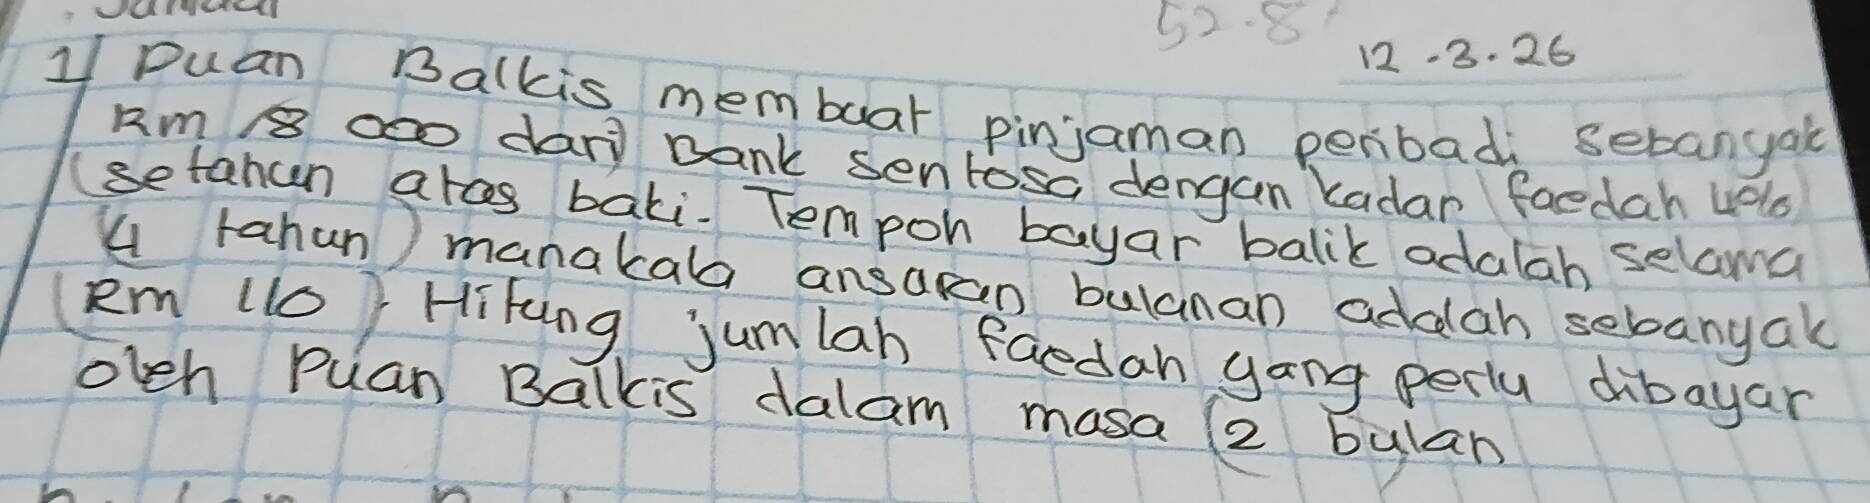 52.8
12.3.26
1/ Puan Balkis membuat pinjaman peribadi sebanyak
Rm 8 000 dari Bank Sentosa dengan kadar faedah 4%
setahun atas baki. Tempoh bayar balik adalah selama
4 tahun) manakala ansuran bulanan adalah sebanyak
Rm 110). Hitung jumlah faedah yang perlu dibayar
oleh Puan Balkis dalam masa (2 bulan